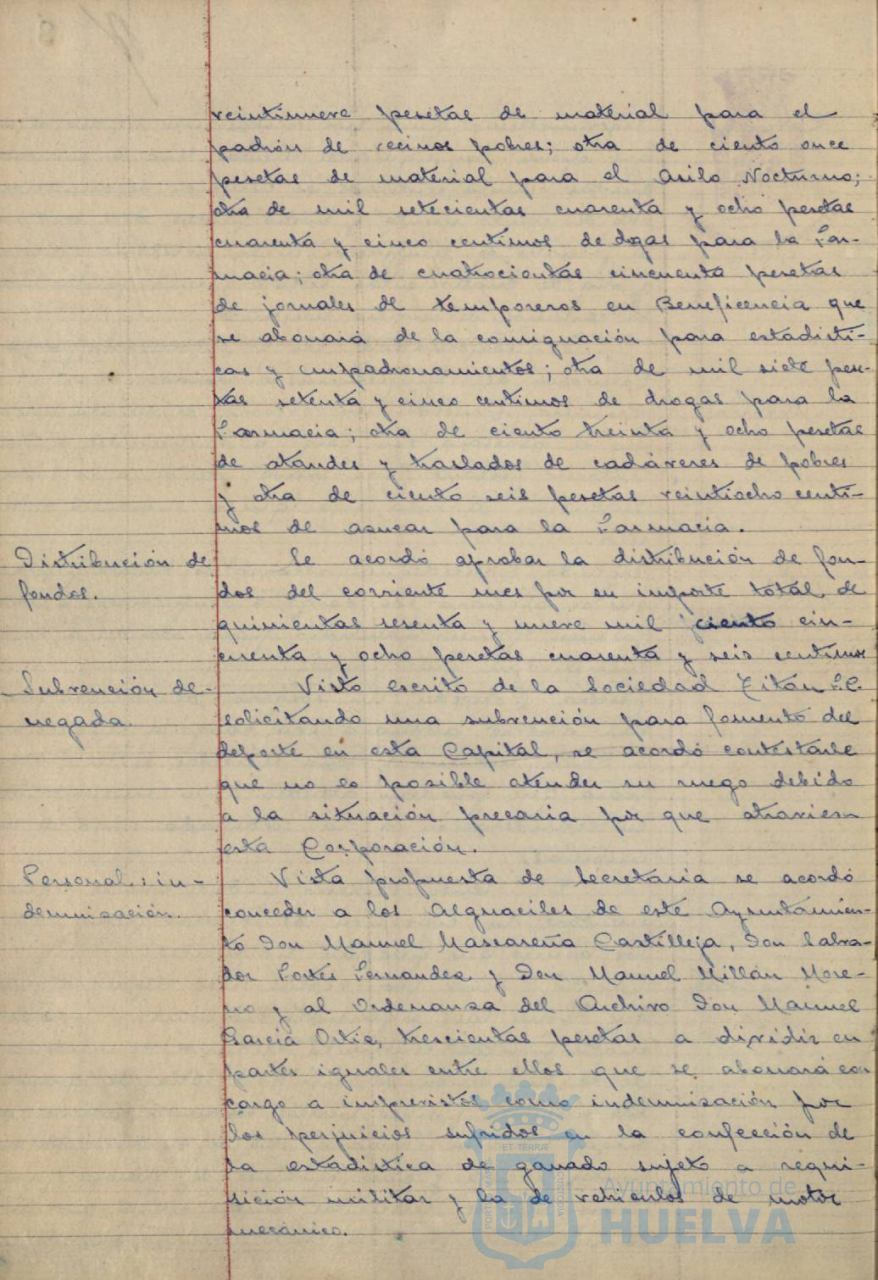 veintinueve pesetas de material para el
padrón de vecinos pobres; otra de ciento once
pesetas de material para el Asilo Nocturno;
otra de mil setecientas cuarenta y ocho pesetas
cuarenta y cinco centimos de dogas para la Far-
macia; otra de cuatrocientas cincuenta pesetas
de jornales de temporeros en Beneficencia que
se abonará de la consignación para estadisti-
cas y empadronamientos; otra de mil siete pese-
tas setenta y cinco centimos de drogas para la
Farmacia; otra de ciento treinta y ocho pesetas
de ataudes y traslados de cadáveres de pobres
y otra de ciento seis pesetas veintiocho centi-
mos de azucar para la Farmacia.
Distribución de
fondos.
Se acordó aprobar la distribución de fon-
dos del corriente mes por su importe total de
quinientas sesenta y nueve mil ciento cin-
cuenta y ocho pesetas cuarenta y seis centimos
Subvención de-
negada.
Visto escrito de la Sociedad Titán F.C.
solicitando una subvención para fomento del
deporte en esta Capital, se acordó contestarle
que no es posible atender su ruego debido
a la situación precaria por que atraviesa
esta Corporación.
Personal: in-
demnización.
Vista propuesta de Secretaria se acordó
conceder a los Alguaciles de este Ayuntamien-
to Don Manuel Mascareña Castilleja, Don Salva-
dor Cortés Fernandez y Don Manuel Millán More-
no y al Ordenanza del Archivo Don Manuel
Garcia Ortiz, trescientas pesetas a dividir en
partes iguales entre ellos que se abonará con
cargo a imprevistos como indemnización por
los perjuicios sufridos en la confección de
la estadistica de ganado sujeto a requi-
sición militar y la de vehiculos de motor
mecánico.
Ayuntamiento de
HUELVA